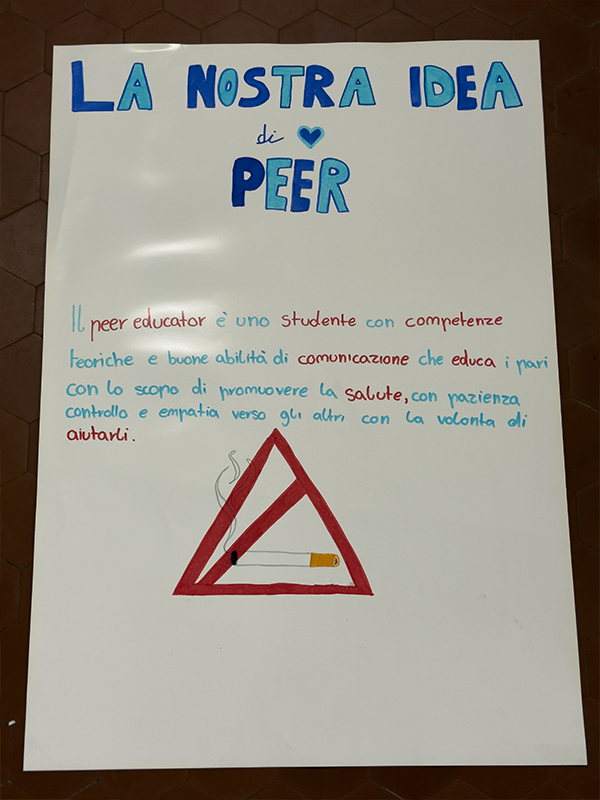 LA NOSTRA IDEA
di
PEER
Il peer educator è uno studente con competenze
teoriche e buone abilità di comunicazione che educa i pari
con lo scopo di promuovere la salute, con pazienza
controllo e empatia verso gli altri con la volontà di
aiutarli.